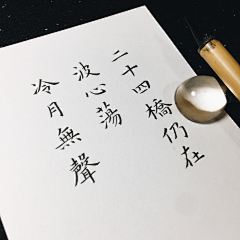 二十四橋仍在
波心蕩
冷月無聲